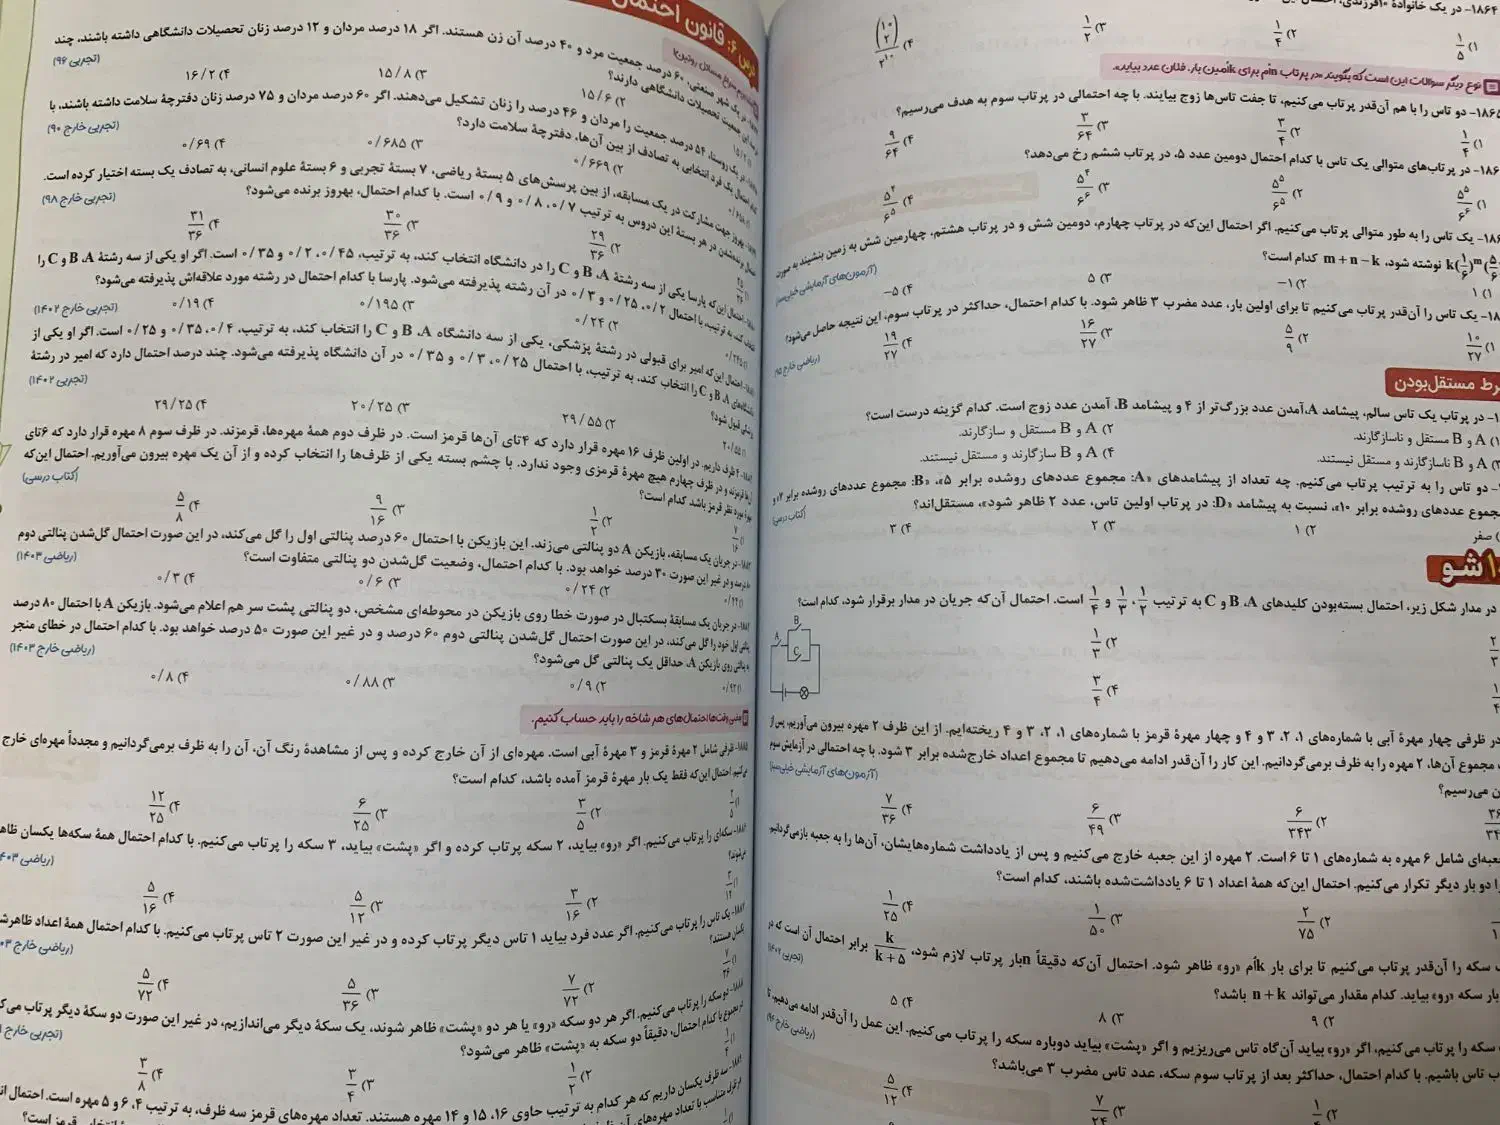 ۱۸۶۴- در یک خانوادهٔ ۱۰فرزندی، احتمال این
۱) ۱/۵ ۲) ۱/۴ ۳) ۱/۲ ۴) (۱۰ ۲)/۲^۱۰
نوع دیگر سوالات این است که بگویند «در پرتاب nاُم برای kاُمین بار، فلان عدد بیاید.
۱۸۶۵- دو تاس را با هم آن‌قدر پرتاب می‌کنیم، تا جفت تاس‌ها زوج بیایند. با چه احتمالی در پرتاب سوم به هدف می‌رسیم؟
۱) ۱/۴ ۲) ۳/۴ ۳) ۳/۶۴ ۴) ۹/۶۴
در پرتاب‌های متوالی یک تاس با کدام احتمال دومین عدد ۵، در پرتاب ششم رخ می‌دهد؟
۱) ۵^۵/۶^۶ ۲) ۵^۵/۶^۵ ۳) ۵^۴/۶^۶ ۴) ۵^۴/۶^۵
یک تاس را به طور متوالی پرتاب می‌کنیم. اگر احتمال این‌که در پرتاب چهارم، دومین شش و در پرتاب هشتم، چهارمین شش به زمین بنشیند به صورت
k(۱/۶)^m(۵/۶) نوشته شود، m+n−k کدام است؟ (آزمون‌های آزمایشی خیلی‌سبز)
۱) ۱ ۲) ۱− ۳) ۵ ۴) ۵−
یک تاس را آن‌قدر پرتاب می‌کنیم تا برای اولین بار، عدد مضرب ۳ ظاهر شود. با کدام احتمال، حداکثر در پرتاب سوم، این نتیجه حاصل می‌شود؟
۱) ۱۰/۲۷ ۲) ۵/۹ ۳) ۱۶/۲۷ ۴) ۱۹/۲۷
رط مستقل‌بودن
در پرتاب یک تاس سالم، پیشامد A، آمدن عدد بزرگ‌تر از ۴ و پیشامد B، آمدن عدد زوج است. کدام گزینه درست است؟
۱) A و B مستقل و ناسازگارند. ۲) A و B مستقل و سازگارند.
A و B ناسازگارند و مستقل نیستند. ۴) A و B سازگارند و مستقل نیستند.
دو تاس را به ترتیب پرتاب می‌کنیم. چه تعداد از پیشامدهای «A: مجموع عددهای روشده برابر ۵»، «B: مجموع عددهای روشده برابر ۷» و
جموع عددهای روشده برابر ۱۰»، نسبت به پیشامد «D: در پرتاب اولین تاس، عدد ۲ ظاهر شود»، مستقل‌اند؟ (کتاب درسی)
صفر ۲) ۱ ۳) ۲ ۴) ۳
شو
در مدار شکل زیر، احتمال بسته‌بودن کلیدهای A، B و C به ترتیب ۱/۲، ۱/۳ و ۱/۴ است. احتمال آن‌که جریان در مدار برقرار شود، کدام است؟
۲/۳ ۲) ۱/۳
۱/۴ ۴) ۳/۴
A B C
در ظرفی چهار مهرهٔ آبی با شماره‌های ۱، ۲، ۳ و ۴ و چهار مهرهٔ قرمز با شماره‌های ۱، ۲، ۳ و ۴ ریخته‌ایم. از این ظرف ۲ مهره بیرون می‌آوریم، پس از
مجموع آن‌ها، ۲ مهره را به ظرف برمی‌گردانیم. این کار را آن‌قدر ادامه می‌دهیم تا مجموع اعداد خارج‌شده برابر ۳ شود. با چه احتمالی در آزمایش سوم
می‌رسیم؟ (آزمون‌های آزمایشی خیلی‌سبز)
۲) ۶/۳۴۳ ۳) ۶/۴۹ ۴) ۷/۳۶
جعبه‌ای شامل ۶ مهره به شماره‌های ۱ تا ۶ است. ۲ مهره از این جعبه خارج می‌کنیم و پس از یادداشت شماره‌هایشان، آن‌ها را به جعبه بازمی‌گردانیم.
را دو بار دیگر تکرار می‌کنیم. احتمال این‌که همهٔ اعداد ۱ تا ۶ یادداشت‌شده باشند، کدام است؟
۲) ۲/۷۵ ۳) ۱/۵۰ ۴) ۱/۲۵
سکه را آن‌قدر پرتاب می‌کنیم تا برای بار kاُم «رو» ظاهر شود. احتمال آن‌که دقیقاً nبار پرتاب لازم شود، k/(k+۵) برابر احتمال آن است که در
بار سکه «رو» بیاید. کدام مقدار می‌تواند n+k باشد؟ (تجربی ۱۴۰۲)
۲) ۹ ۳) ۸ ۴) ۵
سکه را پرتاب می‌کنیم، اگر «رو» بیاید آن‌گاه تاس می‌ریزیم و اگر «پشت» بیاید دوباره سکه را پرتاب می‌کنیم. این عمل را آن‌قدر ادامه می‌دهیم، تا
تاس باشیم. با کدام احتمال، حداکثر بعد از پرتاب سوم سکه، عدد تاس مضرب ۳ می‌باشد؟ (ریاضی خارج ۹۴)
۲) ۱/۴ ۳) ۷/۲۴ ۴) ۵/۱۲
درس ۶: قانون احتمال
در یک شهر صنعتی، ۶۰ درصد جمعیت مرد و ۴۰ درصد آن زن هستند. اگر ۱۸ درصد مردان و ۱۲ درصد زنان تحصیلات دانشگاهی داشته باشند، چند
درصد این جمعیت تحصیلات دانشگاهی دارند؟ (تجربی ۹۶)
۲) ۱۵/۶ ۳) ۱۵/۸ ۴) ۱۶/۲
در یک روستا، ۵۴ درصد جمعیت را مردان و ۴۶ درصد را زنان تشکیل می‌دهند. اگر ۶۰ درصد مردان و ۷۵ درصد زنان دفترچهٔ سلامت داشته باشند، با
کدام احتمال یک فرد انتخابی به تصادف از بین آن‌ها، دفترچهٔ سلامت دارد؟ (تجربی خارج ۹۰)
۲) ۰/۶۶۹ ۳) ۰/۶۸۵ ۴) ۰/۶۹
بهروز جهت مشارکت در یک مسابقه، از بین پرسش‌های ۵ بستهٔ ریاضی، ۷ بستهٔ تجربی و ۶ بستهٔ علوم انسانی، به تصادف یک بسته اختیار کرده است.
احتمال برنده‌شدن در هر بستهٔ این دروس به ترتیب ۰/۷، ۰/۸ و ۰/۹ است. با کدام احتمال، بهروز برنده می‌شود؟ (تجربی خارج ۹۸)
۱) ۲۵/۳۶ ۲) ۲۹/۳۶ ۳) ۳۰/۳۶ ۴) ۳۱/۳۶
احتمال این‌که پارسا یکی از سه رشتهٔ A، B و C را در دانشگاه انتخاب کند، به ترتیب، ۰/۴۵، ۰/۲ و ۰/۳۵ است. اگر او یکی از سه رشتهٔ A، B و C را
انتخاب کند، به ترتیب، با احتمال ۰/۲، ۰/۲۵ و ۰/۳ در آن رشته پذیرفته می‌شود. پارسا با کدام احتمال در رشته مورد علاقه‌اش پذیرفته می‌شود؟
۱) ۰/۲۴۵ ۲) ۰/۲۴ ۳) ۰/۱۹۵ ۴) ۰/۱۹ (تجربی خارج ۱۴۰۲)
احتمال این‌که امیر برای قبولی در رشتهٔ پزشکی، یکی از سه دانشگاه A، B و C را انتخاب کند، به ترتیب، ۰/۴، ۰/۳۵ و ۰/۲۵ است. اگر او یکی از
دانشگاه‌های A، B و C را انتخاب کند، به ترتیب، با احتمال ۰/۲۵، ۰/۳ و ۰/۳۵ در آن دانشگاه پذیرفته می‌شود. چند درصد احتمال دارد که امیر در رشتهٔ
پزشکی قبول شود؟ (تجربی ۱۴۰۲)
۱) ۲۰/۵۵ ۲) ۲۹/۵۵ ۳) ۲۰/۲۵ ۴) ۲۹/۲۵
۴ ظرف داریم. در اولین ظرف ۱۶ مهره قرار دارد که ۴تای آن‌ها قرمز است. در ظرف دوم همهٔ مهره‌ها، قرمزند. در ظرف سوم ۸ مهره قرار دارد که ۶تای
آن‌ها قرمزند و در ظرف چهارم هیچ مهرهٔ قرمزی وجود ندارد. با چشم بسته یکی از ظرف‌ها را انتخاب کرده و از آن یک مهره بیرون می‌آوریم. احتمال این‌که
مهره مورد نظر قرمز باشد کدام است؟ (کتاب درسی)
۲) ۱/۲ ۳) ۹/۱۶ ۴) ۵/۸
۱۸۸۳- در جریان یک مسابقه، بازیکن A دو پنالتی می‌زند. این بازیکن با احتمال ۶۰ درصد پنالتی اول را گل می‌کند، در این صورت احتمال گل‌شدن پنالتی دوم
درصد و در غیر این صورت ۳۰ درصد خواهد بود. با کدام احتمال، وضعیت گل‌شدن دو پنالتی متفاوت است؟ (ریاضی ۱۴۰۳)
۲) ۰/۲۴ ۳) ۰/۶ ۴) ۰/۳
۱۸۸۴- در جریان یک مسابقهٔ بسکتبال در صورت خطا روی بازیکن در محوطه‌ای مشخص، دو پنالتی پشت سر هم اعلام می‌شود. بازیکن A با احتمال ۸۰ درصد
پنالتی اول خود را گل می‌کند، در این صورت احتمال گل‌شدن پنالتی دوم ۶۰ درصد و در غیر این صورت ۵۰ درصد خواهد بود. با کدام احتمال در خطای منجر
به پنالتی روی بازیکن A، حداقل یک پنالتی گل می‌شود؟ (ریاضی خارج ۱۴۰۳)
۱) ۰/۹۲ ۲) ۰/۹ ۳) ۰/۸۸ ۴) ۰/۸
بعضی وقت‌ها احتمال‌های هر شاخه را باید حساب کنیم.
۱۸۸۵- ظرفی شامل ۲ مهرهٔ قرمز و ۳ مهرهٔ آبی است. مهره‌ای از آن خارج کرده و پس از مشاهدهٔ رنگ آن، آن را به ظرف برمی‌گردانیم و مجدداً مهره‌ای خارج
می‌کنیم. احتمال این‌که فقط یک بار مهرهٔ قرمز آمده باشد، کدام است؟
۱) ۲/۵ ۲) ۳/۵ ۳) ۶/۲۵ ۴) ۱۲/۲۵
۱۸۸۶- سکه‌ای را پرتاب می‌کنیم. اگر «رو» بیاید، ۲ سکه پرتاب کرده و اگر «پشت» بیاید، ۳ سکه را پرتاب می‌کنیم. با کدام احتمال همهٔ سکه‌ها یکسان ظاهر
می‌شوند؟
۲) ۳/۱۶ ۳) ۵/۱۲ ۴) ۵/۱۶
۱۸۸۷- یک تاس را پرتاب می‌کنیم. اگر عدد فرد بیاید ۱ تاس دیگر پرتاب کرده و در غیر این صورت ۲ تاس پرتاب می‌کنیم. با کدام احتمال همهٔ اعداد ظاهرشده
یکسان هستند؟
۱) ۷/۳۶ ۲) ۷/۷۲ ۳) ۵/۳۶ ۴) ۵/۷۲
۱۸۸۸- دو سکه را پرتاب می‌کنیم. اگر هر دو سکه «رو» یا هر دو «پشت» ظاهر شوند، یک سکهٔ دیگر می‌اندازیم، در غیر این صورت دو سکهٔ دیگر پرتاب می‌ک
در مجموع با کدام احتمال، دقیقاً دو سکه به «پشت» ظاهر می‌شود؟
۱) ۱/۴ ۲) ۱/۲ ۳) ۳/۴ ۴) ۳/۸
۱۸۸۹- سه ظرف یکسان داریم که هر کدام به ترتیب حاوی ۱۶، ۱۵ و ۱۴ مهره هستند. تعداد مهره‌های قرمز سه ظرف، به ترتیب ۴، ۶ و ۵ مهره است. احتمال